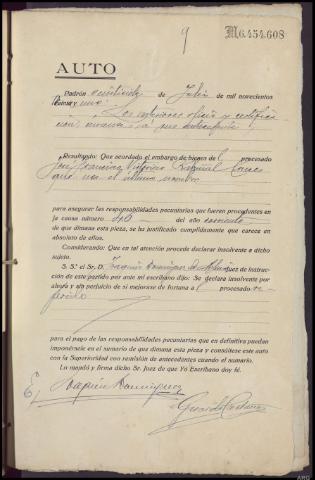 9
M6.454.608
AUTO
Padrón veintinueve de Julio de mil novecientos
treinta y uno.
Los anteriores oficio y certifica
ción, únanse a
Resultando: Que acordado el embargo de bienes del procesado
José Francisco Victorino
que usa el último nombre
para asegurar las responsabilidades pecuniarias que fueren procedentes en
la causa número del año corriente
de que dimana esta pieza, se ha justificado cumplidamente que carece en
absoluto de ellos.
Considerando: Que en tal atención procede declarar insolvente a dicho
sujeto.
S. S.ª el Sr. D. Joaquín Domínguez de Juez de instruc-
ción de este partido por ante mí escribano dijo: Se declara insolvente por
ahora y sin perjuicio de si mejorase de fortuna al procesado re-
ferido
para el pago de las responsabilidades pecuniarias que en definitiva puedan
imponérsele en el sumario de que dimana esta pieza y consúltese este auto
con la Superioridad con remisión de antecedentes cuando el sumario.
Lo mandó y firma dicho Sr. Juez de que Yo Escribano doy fé.
Joaquín Domínguez
Gerardo